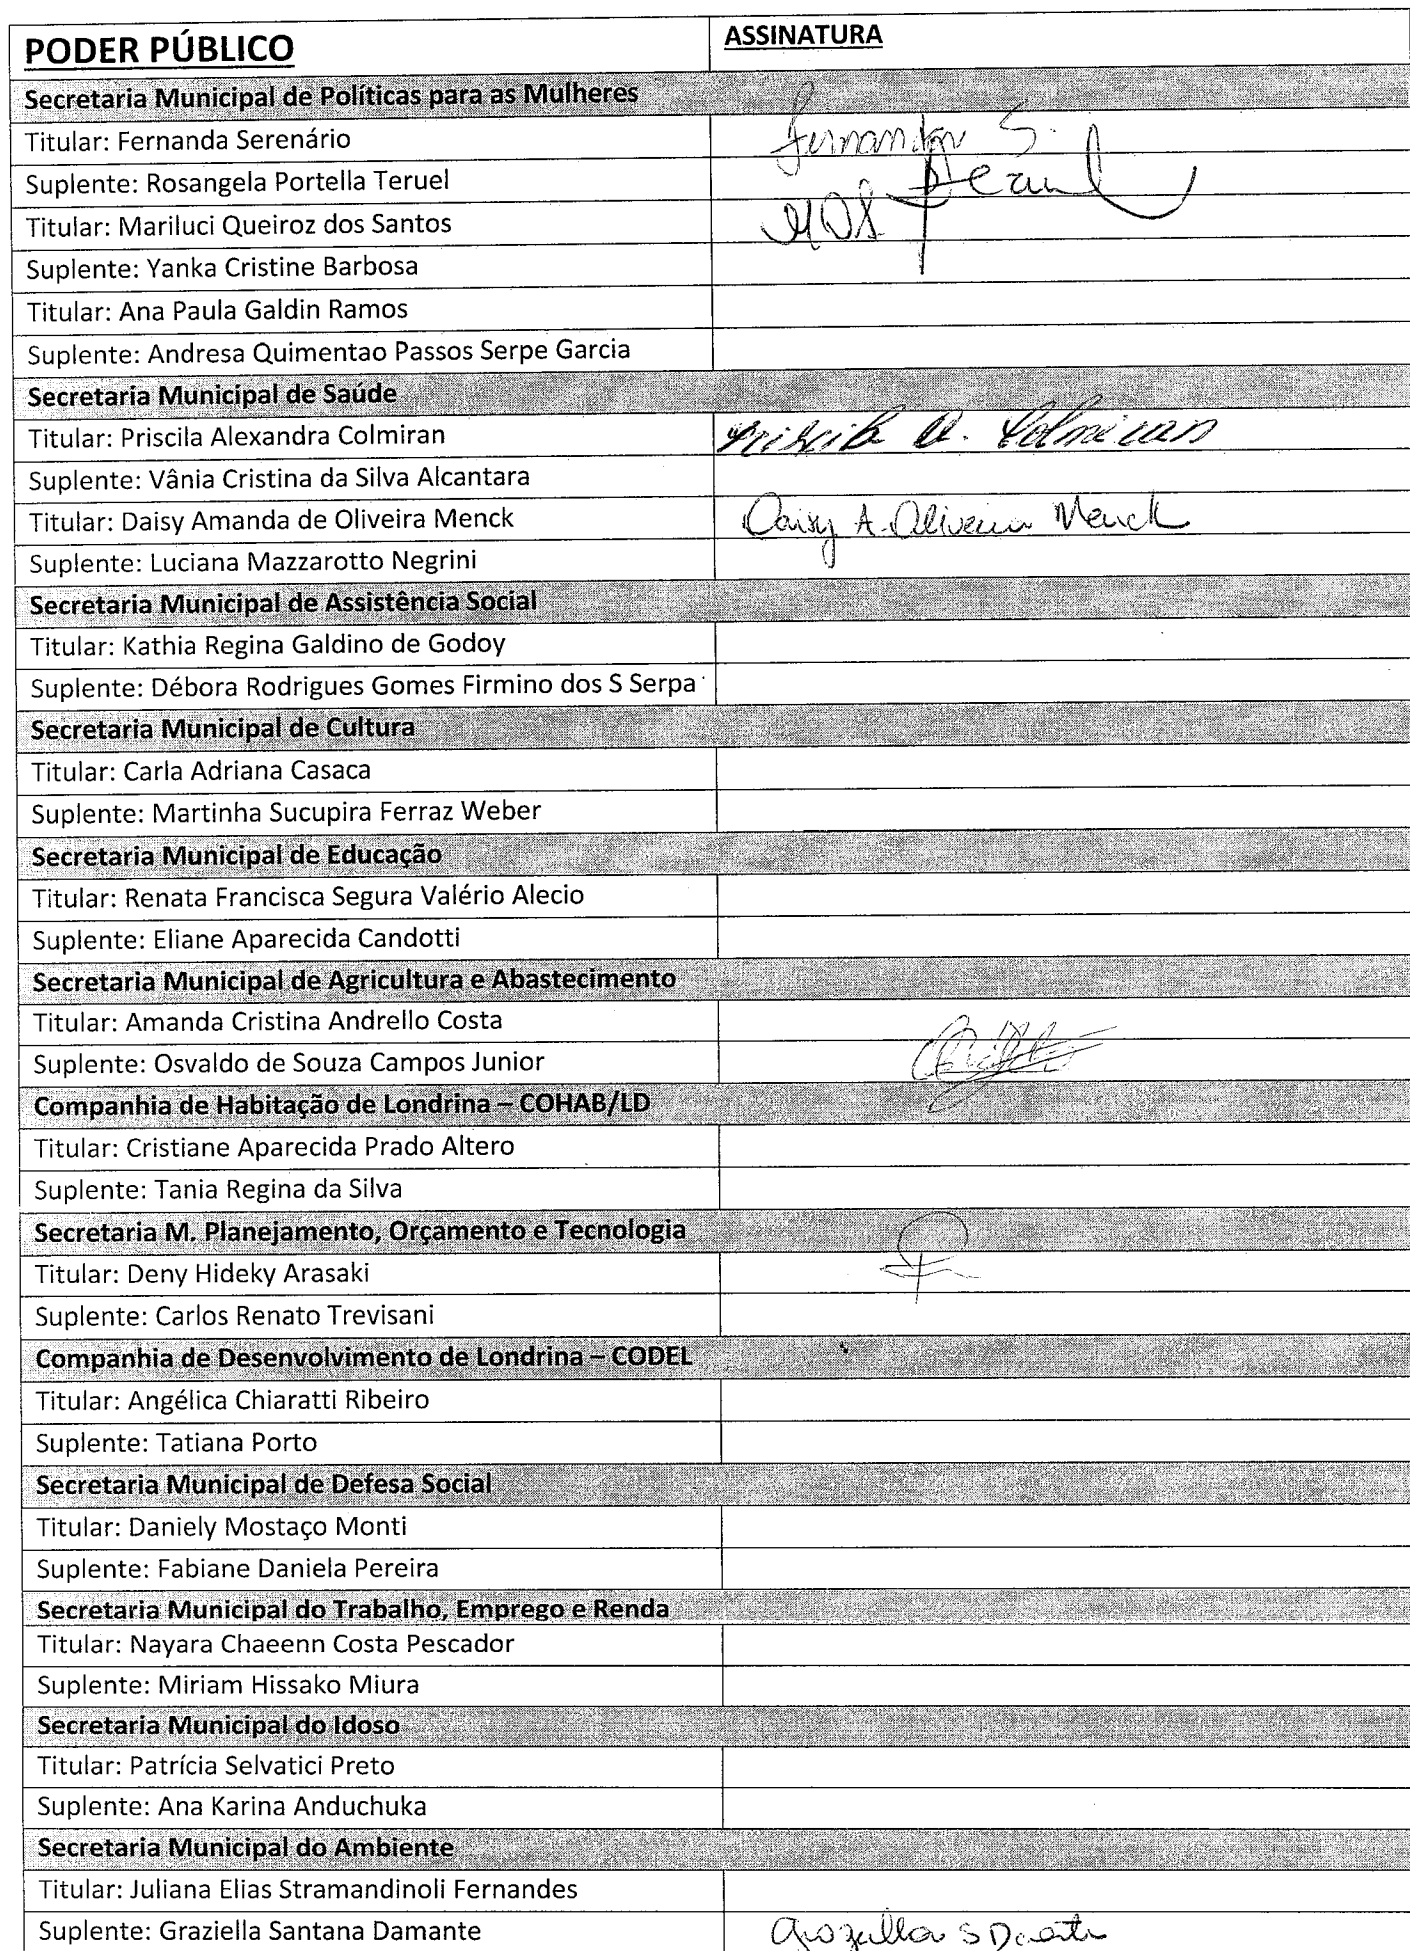 PODER PÚBLICO ASSINATURA
Secretaria Municipal de Políticas para as Mulheres
Titular: Fernanda Serenário Fernanda S.
Suplente: Rosangela Portella Teruel Teruel
Titular: Mariluci Queiroz dos Santos MQS
Suplente: Yanka Cristine Barbosa
Titular: Ana Paula Galdin Ramos
Suplente: Andresa Quimentao Passos Serpe Garcia
Secretaria Municipal de Saúde
Titular: Priscila Alexandra Colmiran Priscila A. Colmiran
Suplente: Vânia Cristina da Silva Alcantara
Titular: Daisy Amanda de Oliveira Menck Daisy A. Oliveira Menck
Suplente: Luciana Mazzarotto Negrini
Secretaria Municipal de Assistência Social
Titular: Kathia Regina Galdino de Godoy
Suplente: Débora Rodrigues Gomes Firmino dos S Serpa
Secretaria Municipal de Cultura
Titular: Carla Adriana Casaca
Suplente: Martinha Sucupira Ferraz Weber
Secretaria Municipal de Educação
Titular: Renata Francisca Segura Valério Alecio
Suplente: Eliane Aparecida Candotti
Secretaria Municipal de Agricultura e Abastecimento
Titular: Amanda Cristina Andrello Costa
Suplente: Osvaldo de Souza Campos Junior
Companhia de Habitação de Londrina – COHAB/LD
Titular: Cristiane Aparecida Prado Altero
Suplente: Tania Regina da Silva
Secretaria M. Planejamento, Orçamento e Tecnologia
Titular: Deny Hideky Arasaki
Suplente: Carlos Renato Trevisani
Companhia de Desenvolvimento de Londrina – CODEL
Titular: Angélica Chiaratti Ribeiro
Suplente: Tatiana Porto
Secretaria Municipal de Defesa Social
Titular: Daniely Mostaço Monti
Suplente: Fabiane Daniela Pereira
Secretaria Municipal do Trabalho, Emprego e Renda
Titular: Nayara Chaeenn Costa Pescador
Suplente: Miriam Hissako Miura
Secretaria Municipal do Idoso
Titular: Patrícia Selvatici Preto
Suplente: Ana Karina Anduchuka
Secretaria Municipal do Ambiente
Titular: Juliana Elias Stramandinoli Fernandes
Suplente: Graziella Santana Damante Graziella S